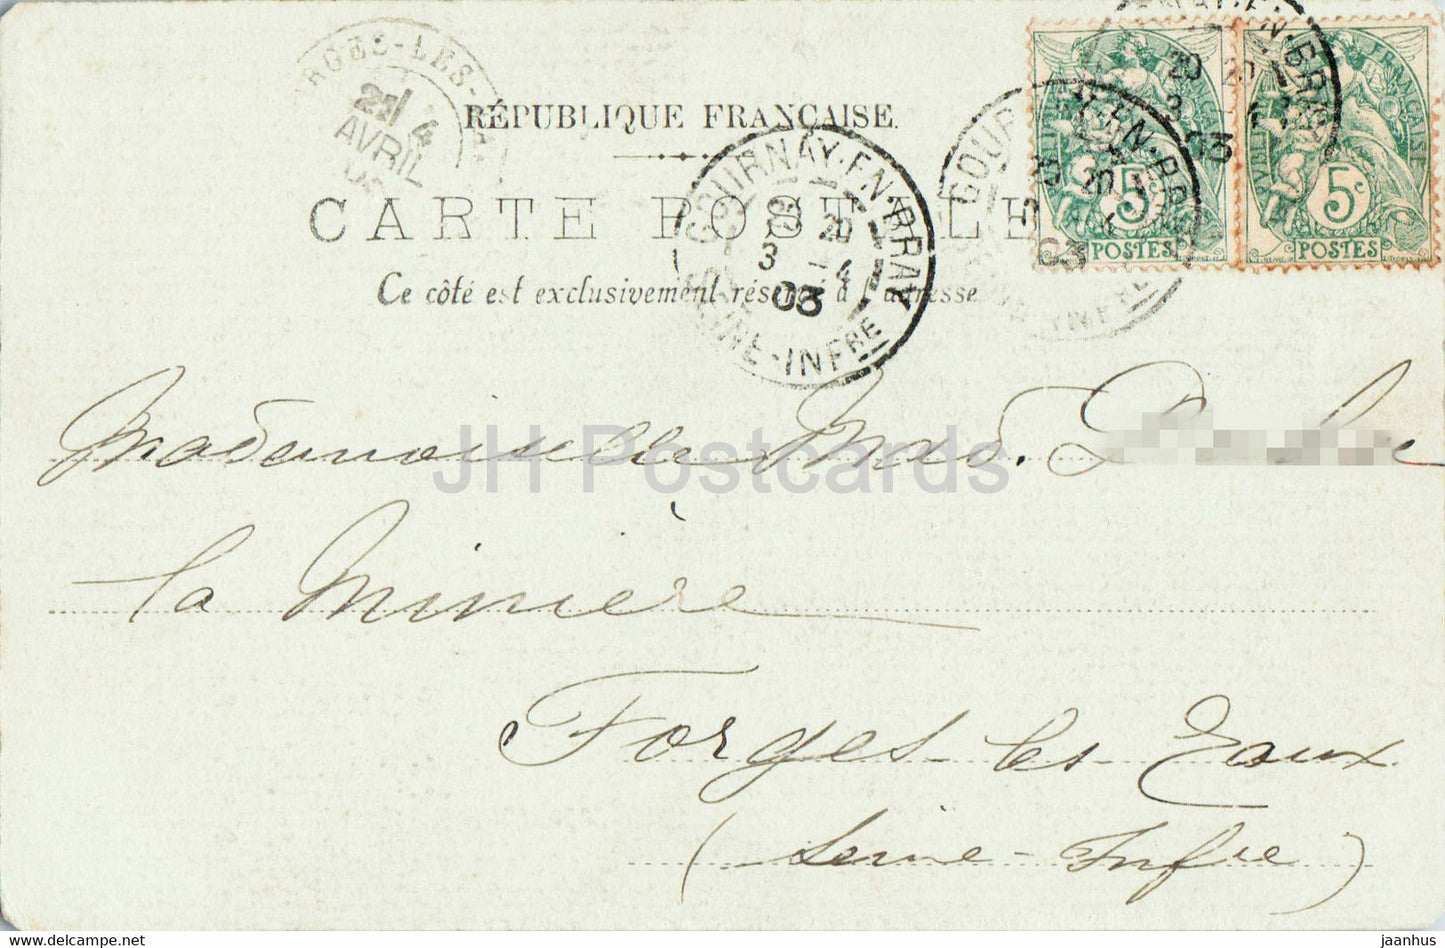 RÉPUBLIQUE FRANÇAISE
CARTE POSTALE
Ce côté est exclusivement réservé à l'adresse
RGES-LES-
21 4
AVRIL
GOURNAY-EN-BRAY
20
3 4
03
SEINE-INFRE
20
3
03
5c
POSTES
5c
POSTES
FRANÇAISE
Mademoiselle Mad.
la Minière
Forges-les-Eaux
(Seine-Infre)
JH Postcards
www.delcampe.net
jaanhus